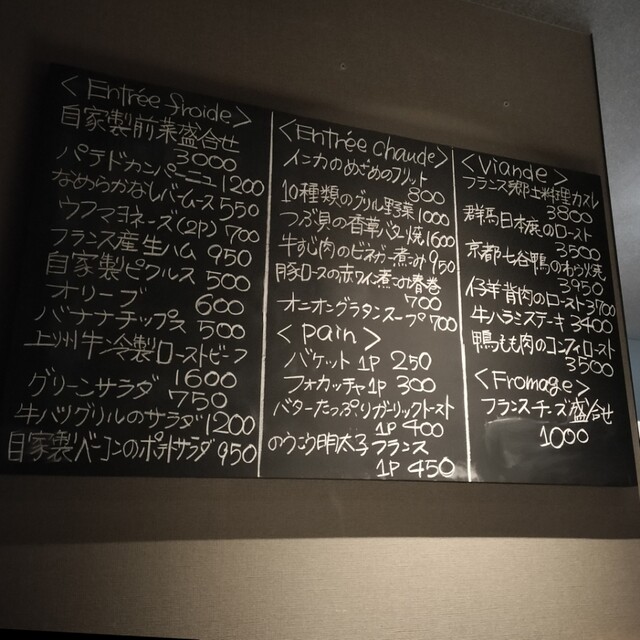 <Entrée froide>
自家製前菜盛合せ
3000
パテドカンパーニュ 1200
なめらかなレバームース 550
ウフマヨネーズ(2P) 700
フランス産生ハム 950
自家製ピクルス 500
オリーブ 600
バナナチップス 500
上州牛冷製ローストビーフ
1600
グリーンサラダ 750
牛バラグリルのサラダ 1200
自家製ベーコンのポテトサラダ 950
<Entrée Chaude>
インカのめざめのフリット
800
10種類のグリル野菜 1000
つぶ貝の香草バター焼 1600
牛すじ肉のビネガー煮込み 950
豚ロースの赤ワイン煮込み春巻
700
オニオングラタンスープ 700
<pain>
バケット 1P 250
フォカッチャ 1P 300
バターたっぷりガーリックトースト
1P 400
のうこう明太子フランス
1P 450
<Viande>
フランス郷土料理カスレ
3800
群馬日本鹿のロースト
3500
京都七谷鴨のわら焼
3950
仔羊背肉のロースト 3700
牛ハラミステーキ 3400
鴨もも肉のコンフィロースト
3500
<Fromage>
フランスチーズ盛合せ
1000